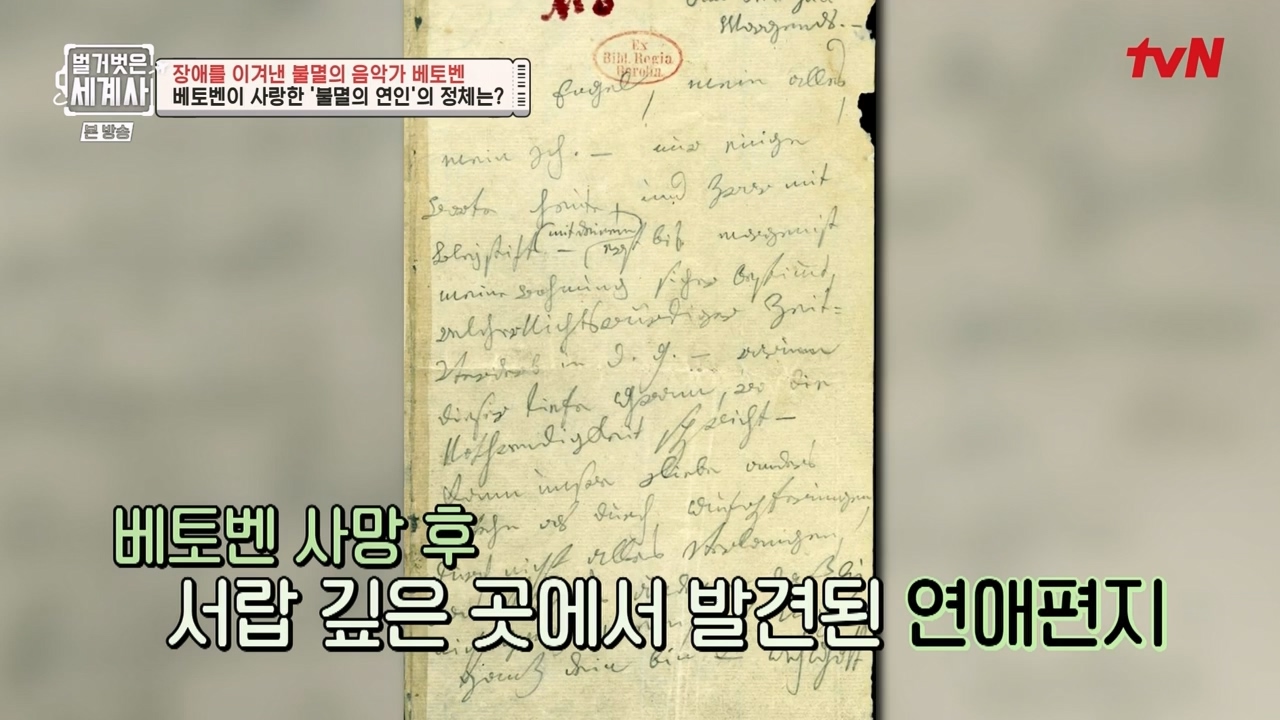 벌거벗은
세계사
본 방송
장애를 이겨낸 불멸의 음악가 베토벤
베토벤이 사랑한 '불멸의 연인'의 정체는?
tvN
Morgends. –
Ex
Bibl. Regia
Berolin.
Engel, mein alles
mein Ich. – nur einige
Worte heute, und zwar mit
Bleystift – (mit deinem)
bis morgen ist
meine Wohnung sicher bestimmt,
welcher Nichtswürdiger Zeit=
Verderb in d. g. – warum
dieser tiefe Gram, wo die
Nothwendigkeit spricht –
Kann unsre Liebe anders
bestehn als durch Aufopferungen,
durch nicht alles Verlangen,
베토벤 사망 후
서랍 깊은 곳에서 발견된 연애편지